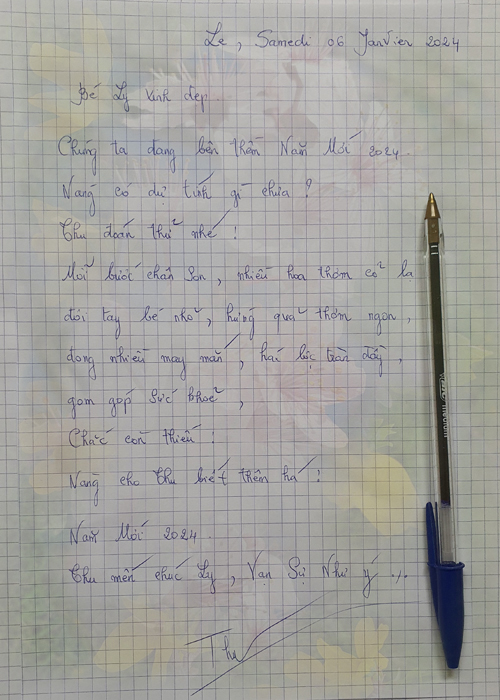 Le, Samedi 06 Janvier 2024
Bé Ly xinh đẹp
Chúng ta đang bên thềm Năm Mới 2024.
Nàng có dự tính gì chưa ?
Thu đoán thử nhé !
Mỗi bước chân son, nhiều hoa thơm cỏ lạ
đôi tay bé nhỏ, hứng quả thơm ngon,
đong nhiều may mắn, hái lộc tràn đầy,
gom góp sức khoẻ,
Chắc còn thiếu !
Nàng cho Thu biết thêm há !
Năm Mới 2024
Thu mến chúc Ly, Vạn Sự Như ý ./.
Thu